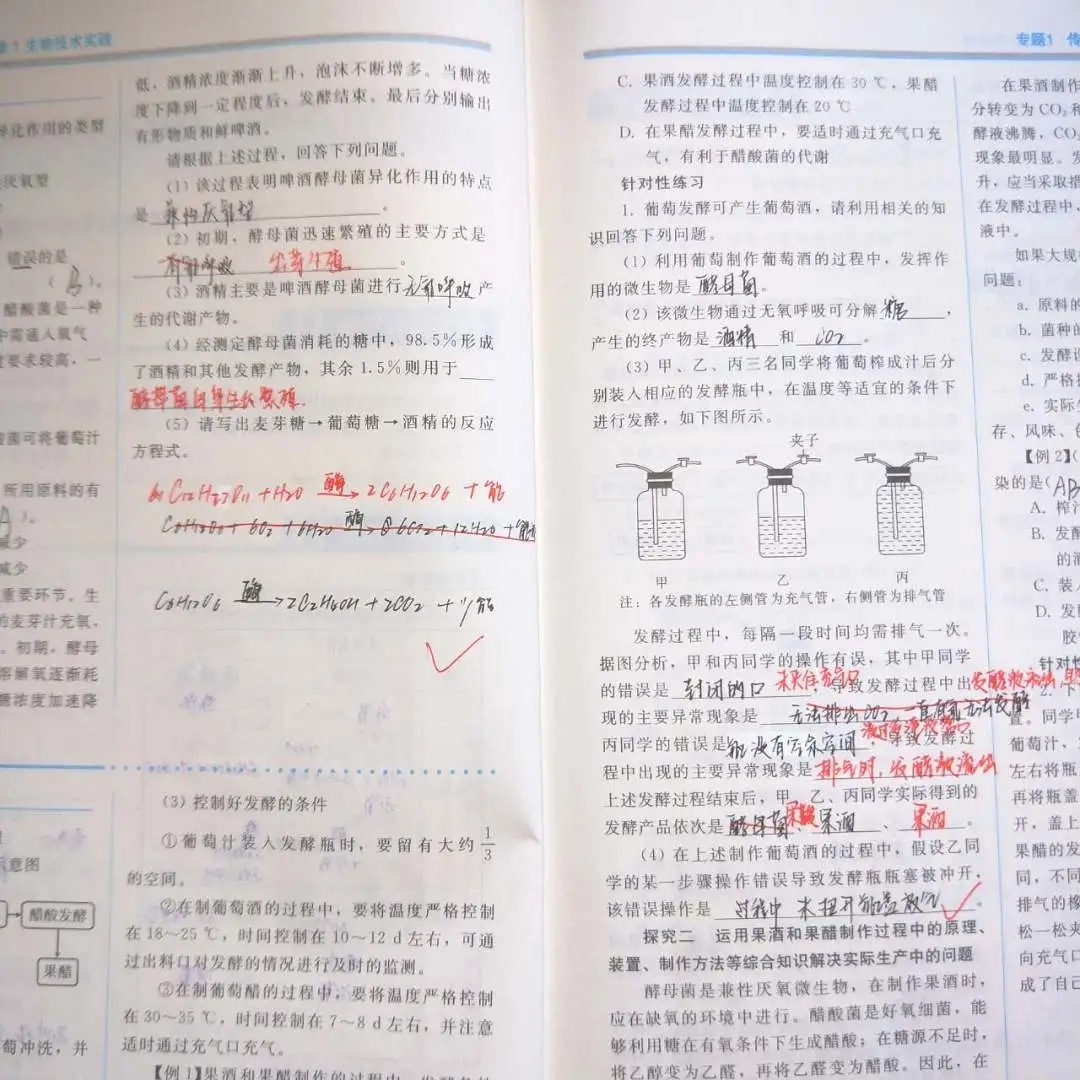 1 生物技术实践
异化作用的类型
厌氧型
错误的是
( B )。
醋酸菌是一种
中需通入氧气
度要求较高，一
酸菌可将葡萄汁
所用原料的有
A )。
减少
减少
重要环节。生
的麦芽汁充氧，
。初期，酵母
溶解氧逐渐耗
糖浓度加速降
示意图
醋酸发酵
果醋
萄冲洗，并
低，酒精浓度渐渐上升，泡沫不断增多。当糖浓
度下降到一定程度后，发酵结束。最后分别输出
有形物质和鲜啤酒。
请根据上述过程，回答下列问题。
(1) 该过程表明啤酒酵母菌异化作用的特点
是 兼性厌氧型 。
(2) 初期，酵母菌迅速繁殖的主要方式是
有氧呼吸 出芽生殖 。
(3) 酒精主要是啤酒酵母菌进行 无氧呼吸 产
生的代谢产物。
(4) 经测定酵母菌消耗的糖中，98.5%形成
了酒精和其他发酵产物，其余 1.5%则用于
酵母菌自身生长繁殖.
(5) 请写出麦芽糖→葡萄糖→酒精的反应
方程式。
C12H22O11 + H2O 酶→ 2C6H12O6 + 能
C6H12O6 + 6O2 + 6H2O 酶→ 6CO2 + 12H2O + 能
C6H12O6 酶→ 2C2H5OH + 2CO2 + 少能
(3) 控制好发酵的条件
①葡萄汁装入发酵瓶时，要留有大约 1/3
的空间。
②在制葡萄酒的过程中，要将温度严格控制
在 18～25 ℃，时间控制在 10～12 d 左右，可通
过出料口对发酵的情况进行及时的监测。
③在制葡萄醋的过程中，要将温度严格控制
在 30～35 ℃，时间控制在 7～8 d 左右，并注意
适时通过充气口充气。
【例 1】果酒和果醋制作的过程中，发酵条件
专题1 传
C. 果酒发酵过程中温度控制在 30 ℃，果醋
发酵过程中温度控制在 20 ℃
D. 在果醋发酵过程中，要适时通过充气口充
气，有利于醋酸菌的代谢
针对性练习
1. 葡萄发酵可产生葡萄酒，请利用相关的知
识回答下列问题。
(1) 利用葡萄制作葡萄酒的过程中，发挥作
用的微生物是 酵母菌 。
(2) 该微生物通过无氧呼吸可分解 糖 ，
产生的终产物是 酒精 和 CO2 。
(3) 甲、乙、丙三名同学将葡萄榨成汁后分
别装入相应的发酵瓶中，在温度等适宜的条件下
进行发酵，如下图所示。
夹子
甲 乙 丙
注：各发酵瓶的左侧管为充气管，右侧管为排气管
发酵过程中，每隔一段时间均需排气一次。
据图分析，甲和丙同学的操作有误，其中甲同学
的错误是 封闭的口 未夹住充气口 ，导致发酵过程中出
现的主要异常现象是 无法排出CO2 无法发酵 发酵液
丙同学的错误是 瓶没有空余空间 ，导致发酵过
程中出现的主要异常现象是 排气时，发酵液流出
上述发酵过程结束后，甲、乙、丙同学实际得到的
发酵产品依次是 酵母菌 果酸 、 果酒 、 果酒 。
(4) 在上述制作葡萄酒的过程中，假设乙同
学的某一步骤操作错误导致发酵瓶瓶塞被冲开，
该错误操作是 过程中未扭开瓶盖放气 。
探究二 运用果酒和果醋制作过程中的原理、
装置、制作方法等综合知识解决实际生产中的问题
酵母菌是兼性厌氧微生物，在制作果酒时，
应在缺氧的环境中进行。醋酸菌是好氧细菌，能
够利用糖在有氧条件下生成醋酸；在糖源不足时，
将乙醇变为乙醛，再将乙醛变为醋酸。因此，在
在果酒制作
分转变为 CO2 和
酵液沸腾，CO2
现象最明显。发
升，应当采取措
在发酵过程中，
液中。
如果大规模
问题：
a. 原料的
b. 菌种的
c. 发酵设
d. 严格控
e. 实际生
存、风味、色
【例 2】(
染的是( AB
A. 榨汁
B. 发酵
的液
C. 装入
D. 发酵
胶
针对性
2. 下
置。同学甲
葡萄汁，
左右将瓶
再将瓶盖
开，盖上
果醋的发
同，不同
排气的橡
松一松夹
向充气口
成了自己